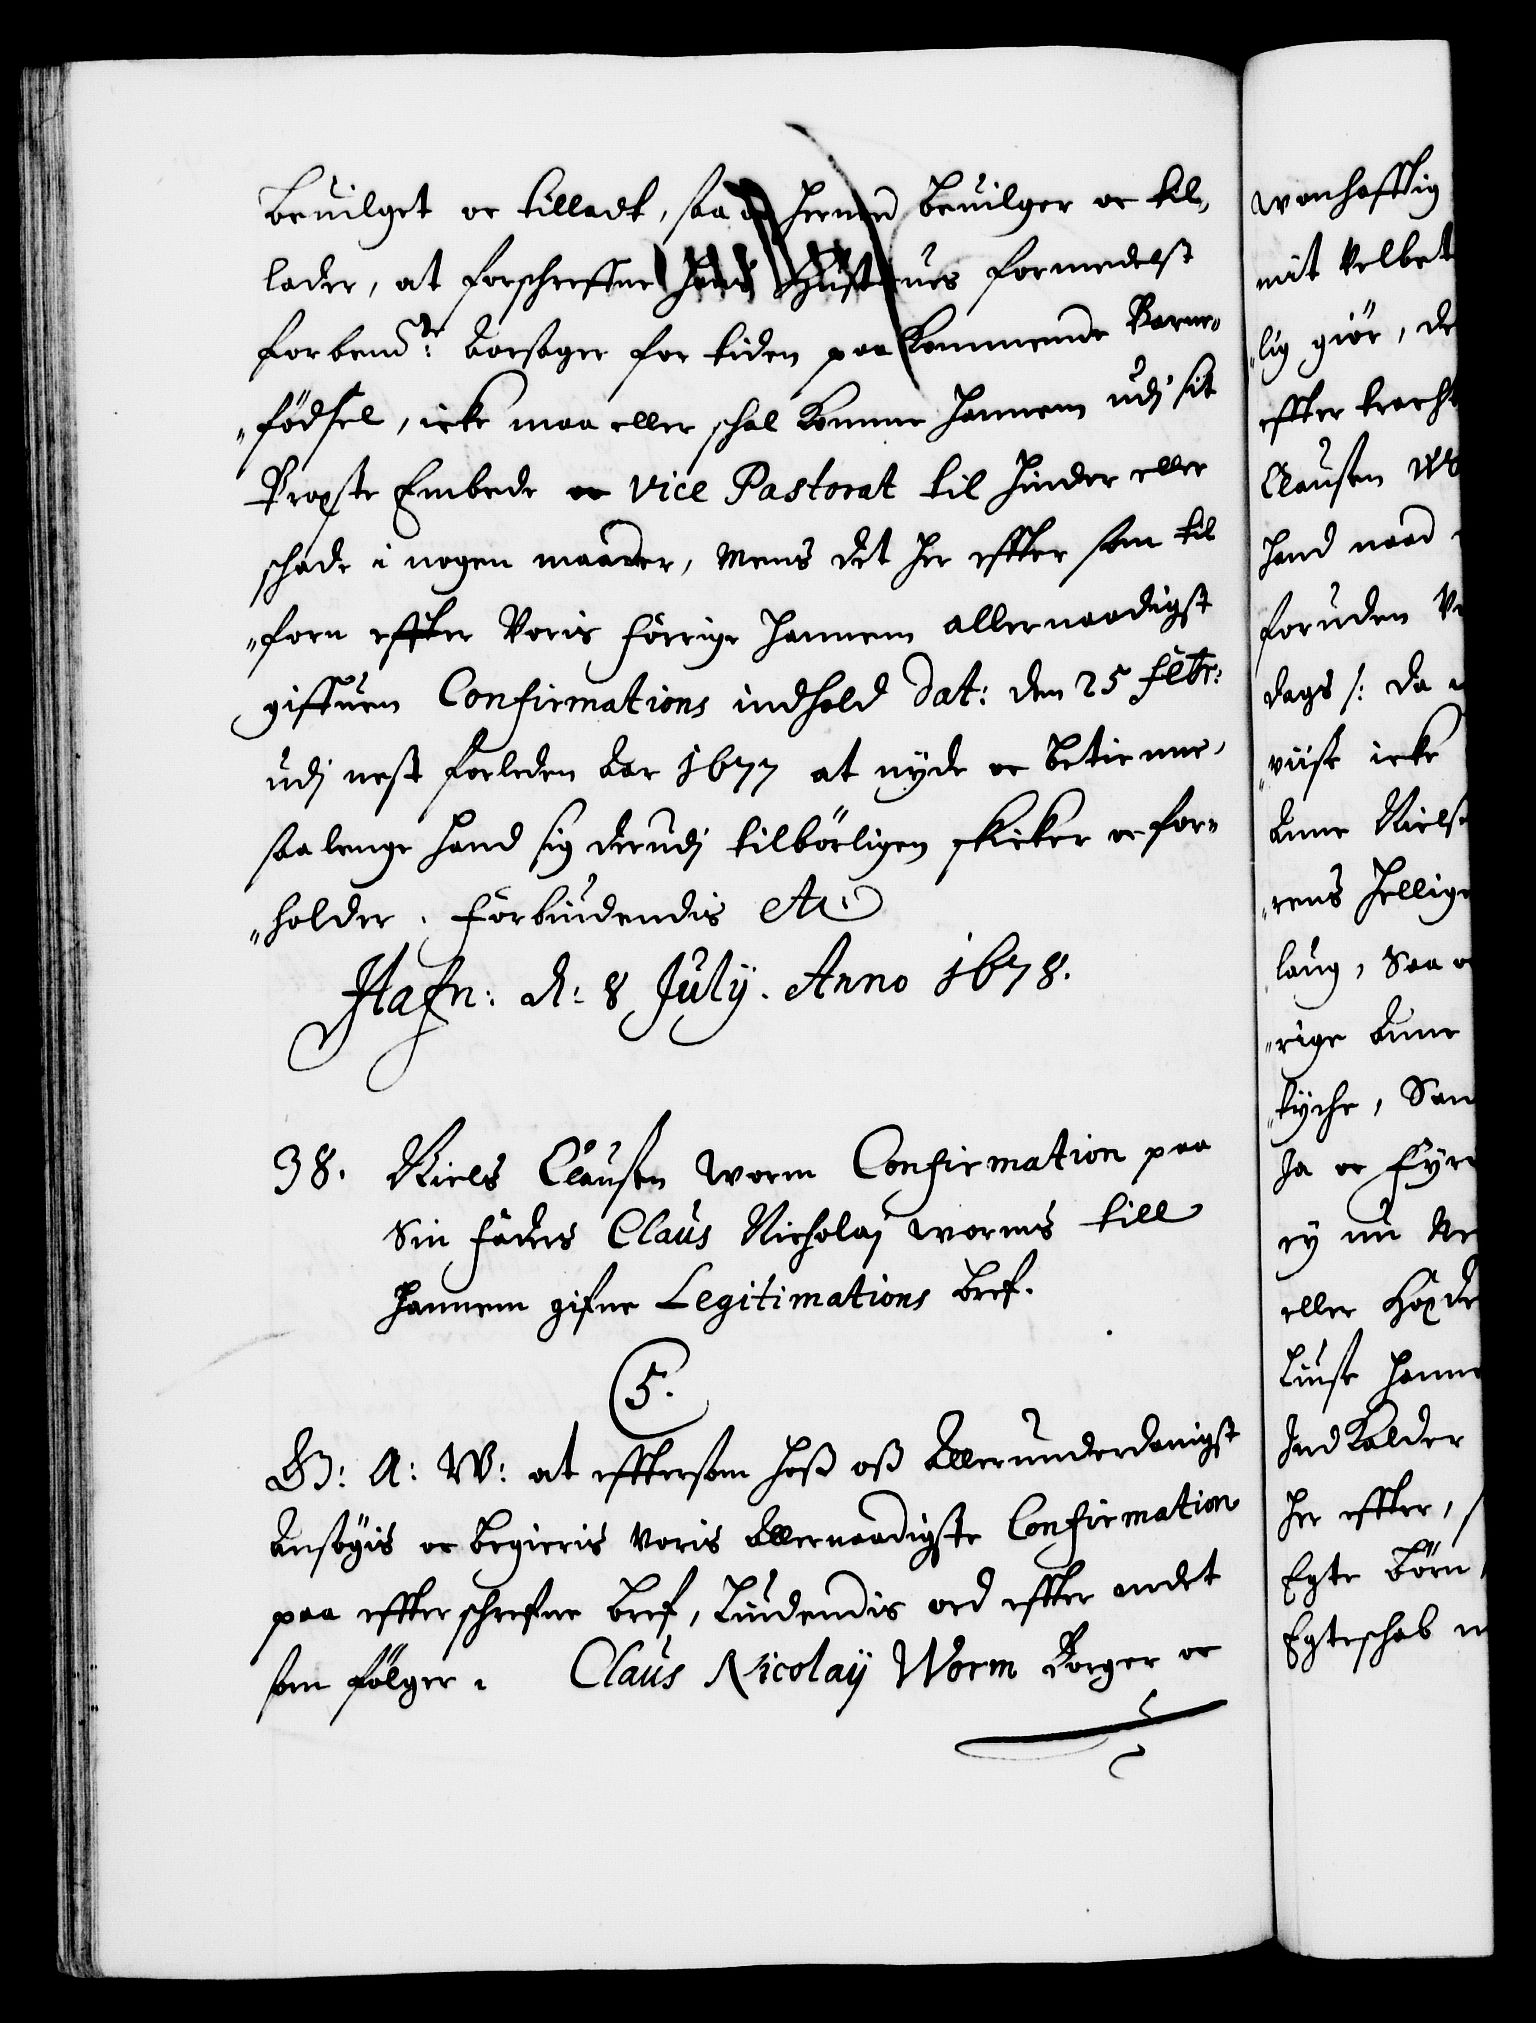 beuilget oc tilladt, saa oc hermed beuilger oc til,
lader, at forschreffne hans Høstrues formedelst
forbemt: aarsager for tiden paa kommende Barne„
„fødsel, icke maa eller schal komme hannem udj sit
Propste Embede oc Vice Pastorat til hinder eller
schade i nogen maader, Mens det her effter som til
„forn effter Voris forrige hannem allernaadigst
giffuen Confirmations indhold Dat: den 25 Febr:
udj nest forleden Aar 1677 at nyde oc betienne,
saa lenge hand sig derudj tilbörligen skicker oc for„
„holder. Forbiudendis etc:
Hafn: d: 8 July. Anno 1678.
38. Niels Clausen Worm Confirmation paa
Sin faders Claus Nicholaj Worms till
hannem gifne Legitimations bref.
5.
G: A: W: at efftersom hoß oß Allerunderdanigst
Ansøgis oc begieris Voris Allernaadigste Confirmation
paa effterschrefne bref, liudendis ord effter andet
som følger. Claus Nicolaij Worm Borger oc
wonhafftig
mit Velbet
„lig giör, de
effter kracht
Clausen
hand naad
foruden
dags /: da
„viise icke
Anne Niels
„rens hellige
laug, Saa
„rige Anne
tyche, Sam
Ja oc Fyre
ey nu
eller
liuse hanne
Ind Kalder
her effter,
Egte börn,
Egteschab